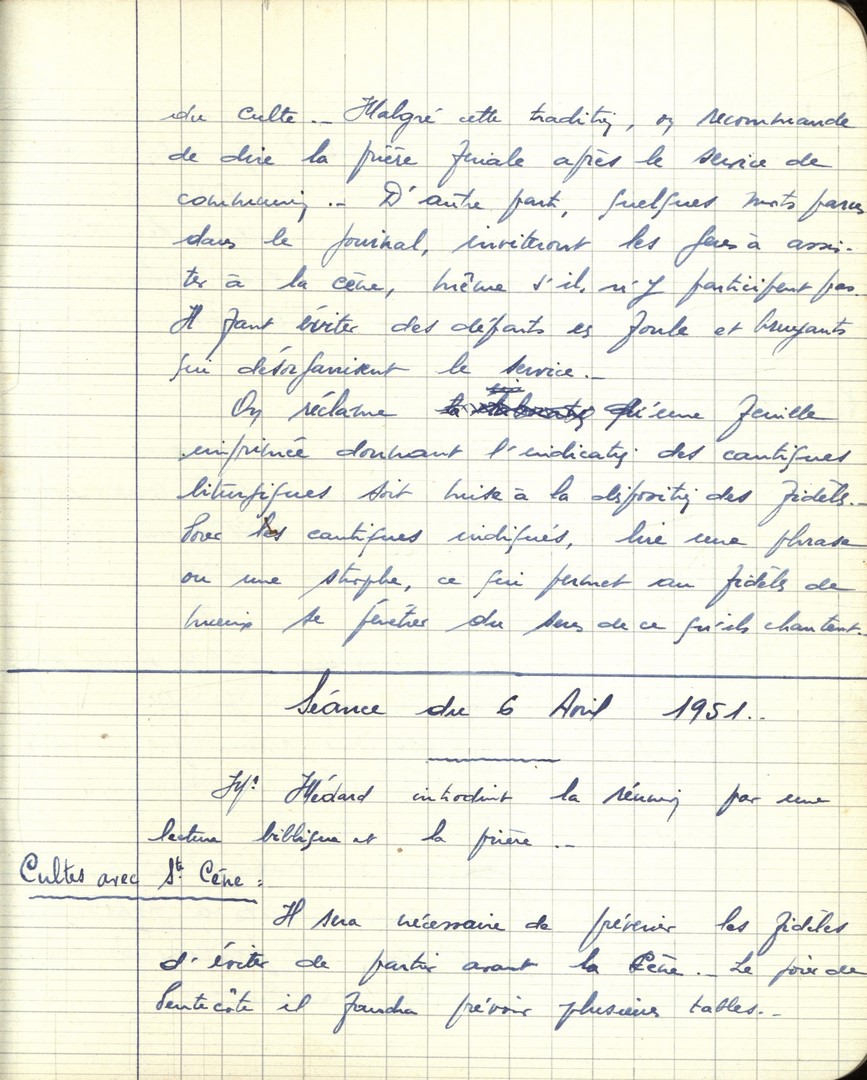 du culte.- Malgré cette tradition, on recommande
de dire la prière finale après le service de
communion.- D'autre part, quelques mots parus
dans le journal, inviteront les gens à assis-
ter à la cène, même s'ils n'y participent pas.-
Il faut éviter des départs en foule et bruyants
qui désorganisent le service.-
On réclame qu'une feuille
imprimée donnant l'indication des cantiques
liturgiques soit mise à la disposition des fidèles.-
Pour les cantiques indiqués, lire une phrase
ou une strophe, ce qui permet au fidèles de
mieux se pénétrer du sens de ce qu'ils chantent.-
Séance du 6 Avril 1951.-
Mr Médard introduit la réunion par une
lecture biblique et la prière.-
Cultes avec Ste Cène :
Il sera nécessaire de prévenir les fidèles
d'éviter de partir avant la Cène.- Le jour de
Pentecôte il faudra prévoir plusieurs tables.-